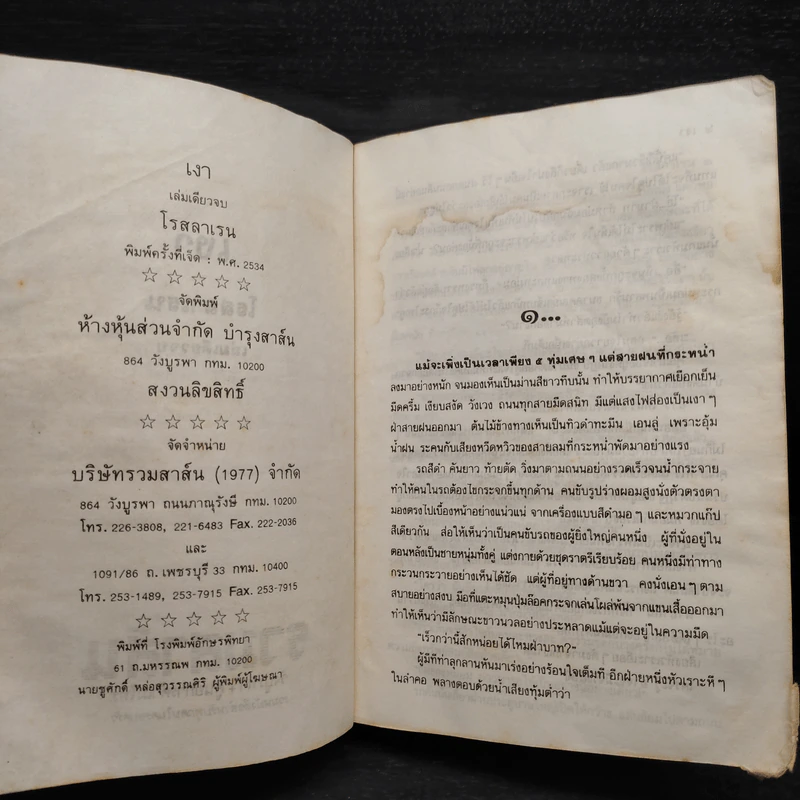 เงา
เล่มเดียวจบ
โรสลาเรน
พิมพ์ครั้งที่เจ็ด : พ.ศ. 2534
☆ ☆ ☆ ☆ ☆
จัดพิมพ์
ห้างหุ้นส่วนจำกัด บำรุงสาส์น
864 วังบูรพา กทม. 10200
สงวนลิขสิทธิ์
☆ ☆ ☆ ☆ ☆
จัดจำหน่าย
บริษัทรวมสาส์น (1977) จำกัด
864 วังบูรพา ถนนภาณุรังษี กทม. 10200
โทร. 226-3808, 221-6483 Fax. 222-2036
และ
1091/86 ถ.เพชรบุรี 33 กทม. 10400
โทร. 253-1489, 253-7915 Fax. 253-7915
☆ ☆ ☆ ☆ ☆
พิมพ์ที่ โรงพิมพ์อักษรพิทยา
61 ถ.มหรรณพ กทม. 10200
นายชูศักดิ์ หล่อสุวรรณศิริ ผู้พิมพ์ผู้โฆษณา
๑...
แม้จะเพิ่งเป็นเวลาเพียง ๕ ทุ่มเศษ ๆ แต่สายฝนที่กระหน่ำ
ลงมาอย่างหนัก จนมองเห็นเป็นม่านสีขาวทึบนั้น ทำให้บรรยากาศเยือกเย็น
มืดครึ้ม เงียบสงัด วังเวง ถนนทุกสายมืดสนิท มีแต่แสงไฟส่องเป็นเงา ๆ
ฝ่าสายฝนออกมา ต้นไม้ข้างทางเห็นเป็นทิวดำทะมึน เอนลู่ เพราะอุ้ม
น้ำฝน ระคนกับเสียงหวีดหวิวของสายลมที่กระหน่ำพัดมาอย่างแรง
รถสีดำ คันยาว ท้ายตัด วิ่งมาตามถนนอย่างรวดเร็วจนน้ำกระจาย
ทำให้คนในรถต้องไขกระจกขึ้นทุกด้าน คนขับรูปร่างผอมสูงนั่งตัวตรงตา
มองตรงไปเบื้องหน้าอย่างแน่วแน่ จากเครื่องแบบสีดำมอ ๆ และหมวกแก๊ป
สีเดียวกัน ส่อให้เห็นว่าเป็นคนขับรถของผู้ยิ่งใหญ่คนหนึ่ง ผู้ที่นั่งอยู่ใน
ตอนหลังเป็นชายหนุ่มทั้งคู่ แต่งกายด้วยชุดราตรีเรียบร้อย คนหนึ่งมีท่าทาง
กระวนกระวายอย่างเห็นได้ชัด แต่ผู้ที่อยู่ทางด้านขวา คงนั่งเอน ๆ ตาม
สบายอย่างสงบ มือที่แตะหมุนปุ่มล็อคกระจกเล่นโผล่พ้นจากแขนเสื้อออกมา
ทำให้เห็นว่ามีลักษณะขาวนวลอย่างประหลาดแม้แต่จะอยู่ในความมืด
"เร็วกว่านี้สักหน่อยได้ไหมฝ่าบาท?"
ผู้มีทีท่าลุกลานหันมาเร่งอย่างร้อนใจเต็มที อีกฝ่ายหนึ่งหัวเราะหึ ๆ
ในลำคอ พลางตอบด้วยน้ำเสียงทุ้มต่ำว่า